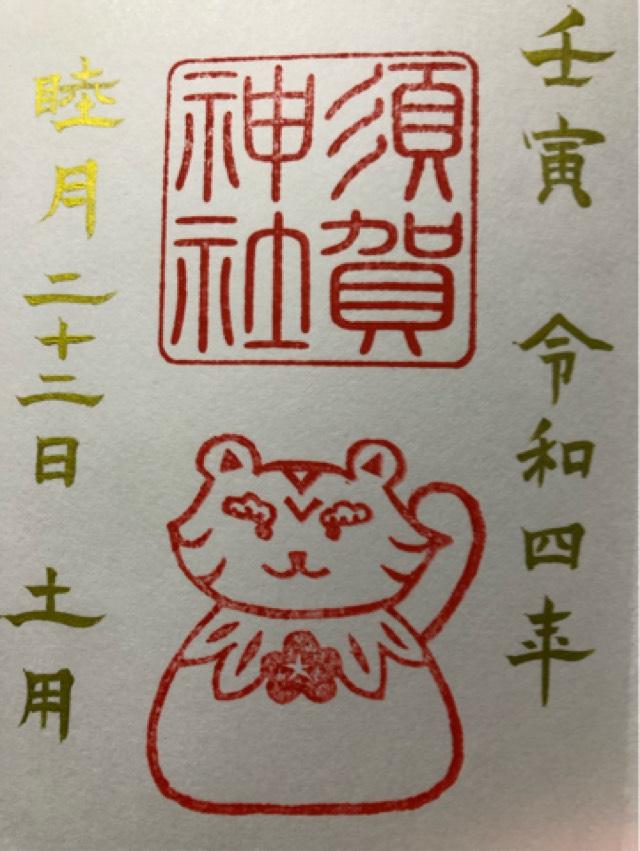 壬寅 令和四年
須賀
神社
睦月二十二日 土用